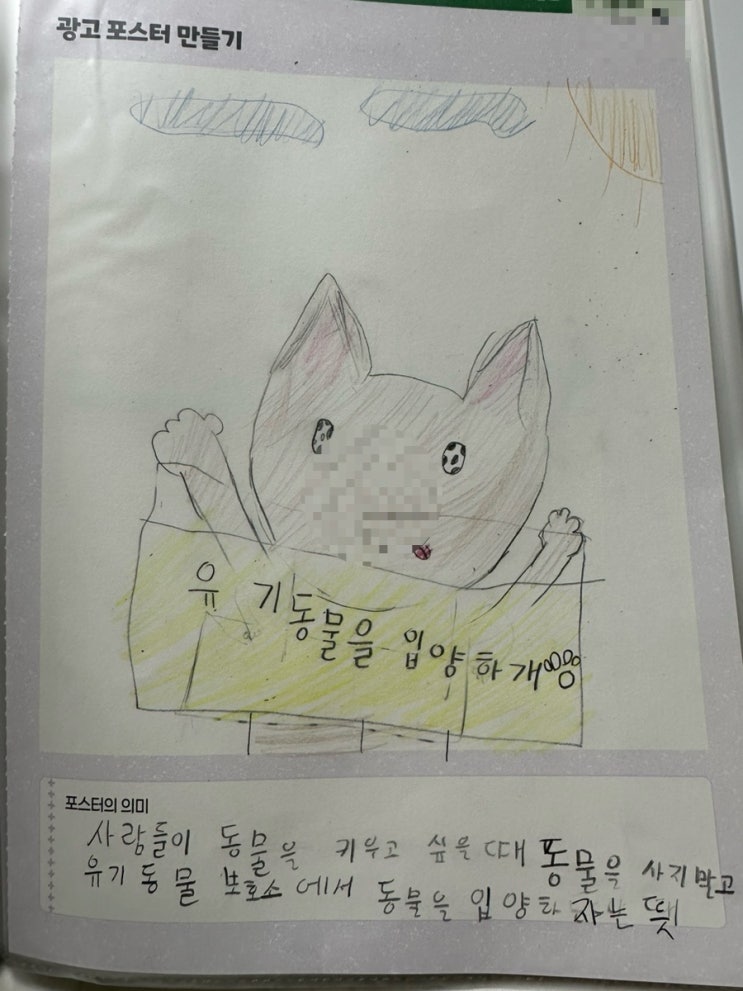 광고 포스터 만들기
유기동물을 입양하개
포스터의 의미
사람들이 동물을 키우고 싶을 때 동물을 사지말고
유기 동물 보호소에서 동물을 입양하자는 뜻